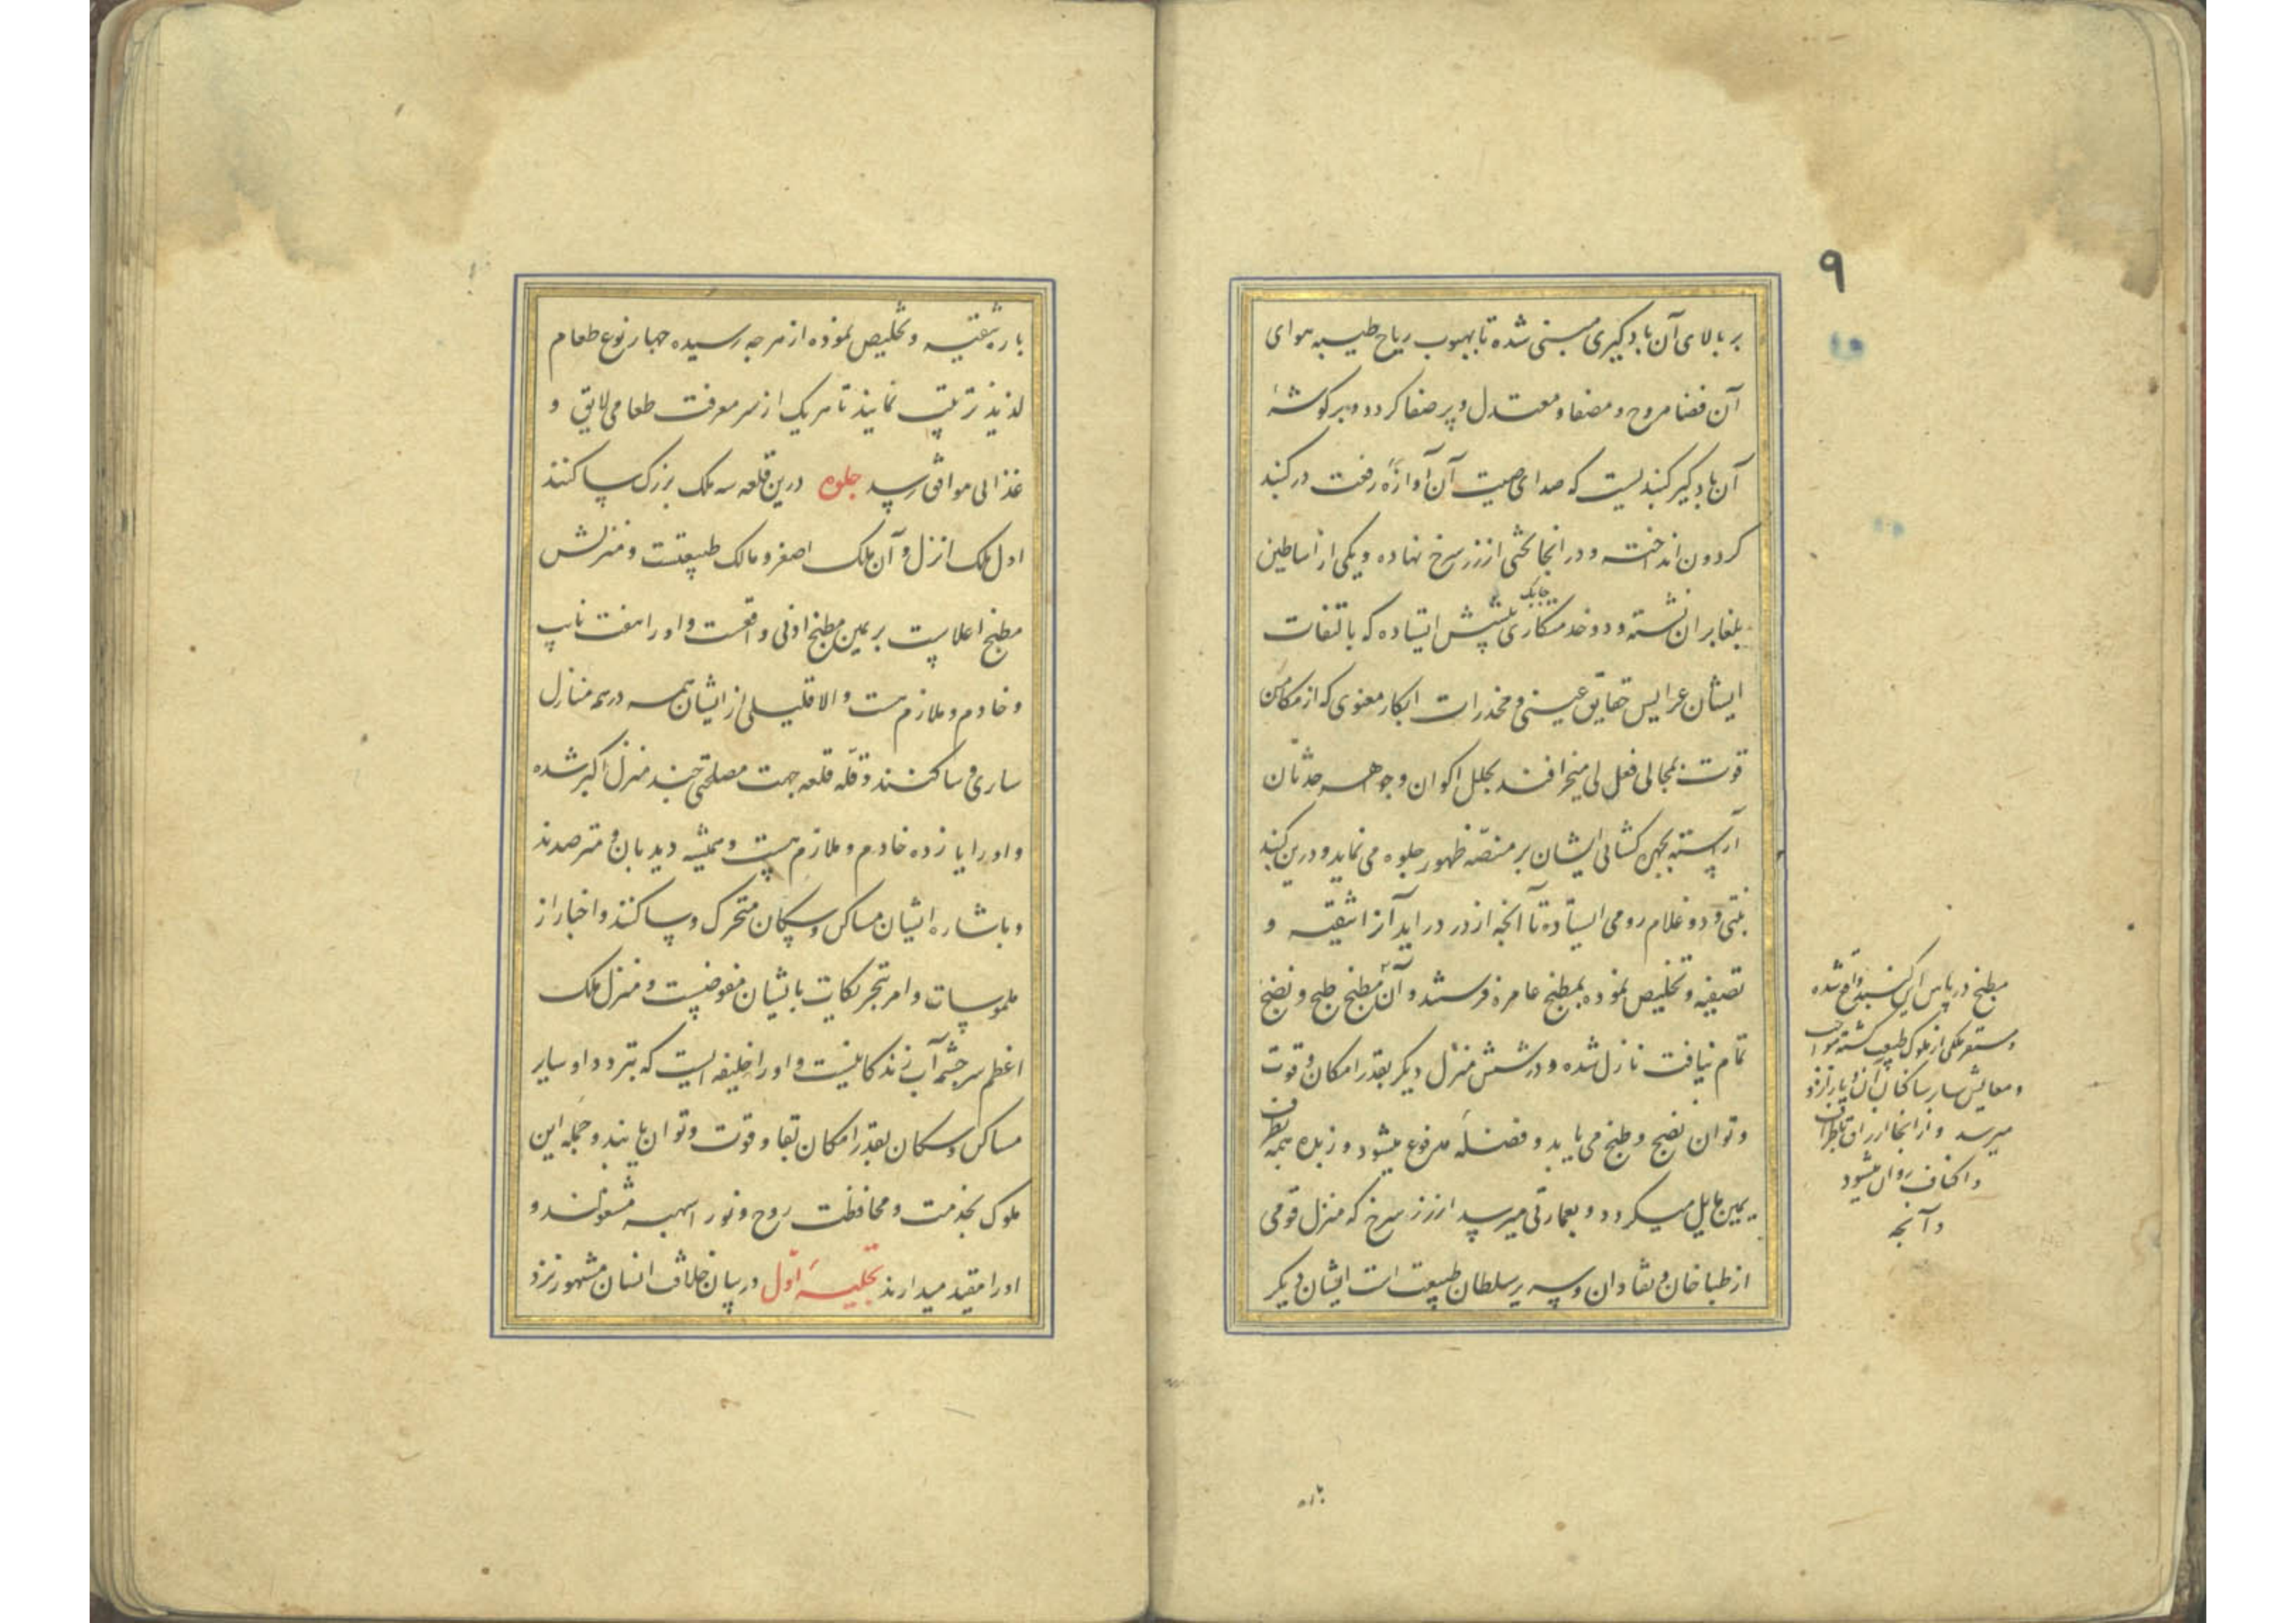 ۹
۱۰
بر بالای آن بادگیری مبنی شده تا بهبوب ریاح طیبه هوای
آن فضا مروح و مصفا و معتدل و پر صفا کردد و بر کوشهٔ
آن بادکیر کنبدیست که صدای صیت آن آوازهٔ رفعت در کنبد
کردون انداخته و در انجا تختی از زر سرخ نهاده و یکی از اساطین
بلغا بر ان نشسته و دو خدمتکاری چابک پیشش ایستاده که بالتفات
ایشان عرایس حقایق عینی و مخدرات ابکار معنوی که از مکامن
قوت بمجالی فعل می‌خرامند بحلل اکوان و جواهر حدثان
آراسته بچهره کشائی ایشان بر منصّه ظهور جلوه می نماید و درین کنبد
و دو غلام رومی ایستاده تا آنچه از در در اید آنرا تنقیه و
تصفیه و تخلیص نموده بمطبخ عامره فرستند و آن مطبخ طبخ و نضج
تمام نیافت نازل شده و در شش منزل دیکر بقدر امکان و قوت
و توان نضج و طبخ می یابد و فضله مدفوع میشود و زبده همه بطرف
یمین مایل میکردد و بعمارتی میرسد از زر سرخ که منزل قومی
از طباخان و نقادان و سریر سلطان طبیعت است ایشان دیکر
مطبخ در پاس این کنبد واقع شده
و مستقر ملکی از ملوک طبیعت کشته
و معایش سایر ساکنان از
میرسد و از انجا ارزاق باطراف
و اکناف روان میشود
و آنچه
باره تنقیه و تخلیص نموده از هر چه رسیده چهار نوع طعام
لذیذ ترتیب نمایند تا هر یک از سر معرفت طعامی لایق و
غذائی موافق رسد جلوه درین قلعه سه ملک بزرک ساکنند
اول ملک انزل و آن ملک اصغر و مالک طبیعتست و منزلش
مطبخ اعلاست بر یمین مطبخ ادنی واقعست و او را هفت نایب
و خادم و ملازم هست و الا قلیلی از ایشان همه در همه منازل
ساری و ساکنند و قله قلعه جهت مصلحتی چند منزل اکبر شده
و او را یازده خادم و ملازم هست و همیشه دیدبان و مترصدند
و باشاره ایشان مساکن و سکان متحرک و ساکنند و اخبار از
ملموسات و امر بتحریکات بایشان مفوضست و منزل ملک
اعظم سرچشمه آب زندکانیست و او را خلیفه ایست که بتردد او سایر
مساکن و سکان بقدر امکان بقا و قوت و توان یابند و جمله این
ملوک بخدمت و محافظت روح و نور اسهبد مشغولند و
او را مقید میدارند تجلیهٔ اول در بیان خلاف انسان مشهور نزد